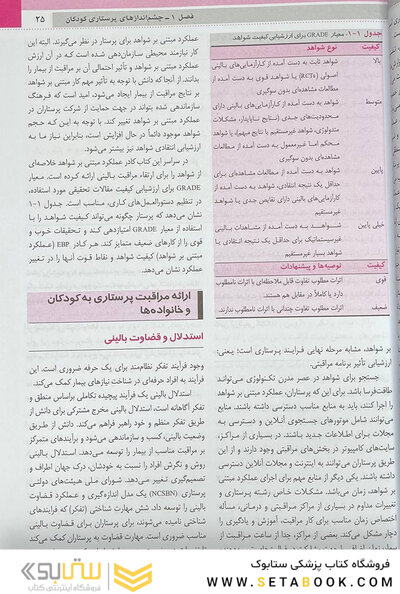 فصل ۱ ـ چشم‌اندازهای پرستاری کودکان
۲۵
جدول ۱-۱- معیار GRADE برای ارزشیابی کیفیت شواهد
کیفیت
نوع شواهد
بالا
شواهد ثابت به دست آمده از کارآزمایی‌های بالینی
اصولی (RCTs) یا شواهد قوی به دست آمده از
مطالعات مشاهده‌ای بدون سوگیری
متوسط
شواهد به دست آمده از کارآزمایی‌های بالینی دارای
محدودیت‌های جدی (نتایج ناپایدار، مشکلات
متدولوژی، شواهد غیرمستقیم یا نتایج مبهم)، یا شواهد
محکم اما غیرمعمول به دست آمده از مطالعات
مشاهده‌ای بدون سوگیری
پایین
شواهد به دست آمده از مطالعات مشاهده‌ای برای
حداقل یک نتیجه انتقادی، شواهد به دست آمده از
کارآزمایی‌های بالینی دارای نقایص جدی یا شواهد
غیرمستقیم
خیلی پایین
شواهد به دست آمده از مشاهدات بالینی
غیرسیستماتیک برای حداقل یک نتیجه انتقادی یا
شواهد بسیار غیرمستقیم
کیفیت
توصیه‌ها و پیشنهادات
قوی
اثرات مطلوب تفاوت قابل ملاحظه‌ای با اثرات نامطلوب
دارد یا کاملاً در مقابل هم هستند.
ضعیف
اثرات مطلوب تفاوت چندانی با اثرات نامطلوب ندارند.
بر شواهد، مشابه مرحله نهایی فرایند پرستاری است؛ یعنی:
ارزشیابی تأثیر برنامه مراقبتی.
جستجو برای شواهد در عصر مدرن تکنولوژی می‌تواند
طاقت‌فرسا باشد. برای این که پرستاران، عملکرد مبتنی بر شواهد
را اجرا کنند، باید به منابع مناسب دسترسی داشته باشند. منابع
می‌توانند شامل موتورهای جستجوی آنلاین و دسترسی به
مجلات برای اطلاعات جدید باشند. در بسیاری از مراکز،
سایت‌های کامپیوتر در بخش‌های مراقبتی وجود دارند و از این
طریق پرستاران می‌توانند به اینترنت و مجلات آنلاین دسترسی
داشته باشند. یکی دیگر از منابع مهم برای اجرای عملکرد مبتنی
بر شواهد، زمان می‌باشد. مشکلات خاص رشته پرستاری و
تغییرات مداوم در بسیاری از مراکز مراقبتی و درمانی، مسأله
اختصاص زمان مناسب برای کار آموزش و یادگیری را
دچار مشکل می‌کند. بعضی از مراکز، جدا از ساعت کار
عملکرد مبتنی بر شواهد برای پرستار در نظر می‌گیرند. البته این
کار نیازمند محیطی سازمان‌دهی شده است که در آن ارزش
عملکرد مبتنی بر شواهد و تأثیر احتمالی آن بر مراقبت از بیمار را
بدانند. از آنجا که دانش با توجه به تأثیر مهم کار مبتنی بر شواهد
بر نتایج مراقبت از بیمار ایجاد می‌شود، امید است که فرهنگ
سازماندهی شده بتواند در جهت حمایت از شرکت پرستاران در
عملکرد مبتنی بر شواهد تغییر کند. با توجه به این که حجم
شواهد موجود دائماً در حال افزایش است، بنابراین نیاز ما به
ارزشیابی انتقادی شواهد نیز بیشتر می‌شود.
در سراسر این کتاب کادر عملکرد مبتنی بر شواهد خلاصه‌ای
از شواهد را برای ارتقاء مراقبت بالینی ارائه کرده است. معیار
GRADE برای ارزشیابی کیفیت مقالات تحقیقی مورد استفاده،
در تنظیم دستورالعمل‌های کاری، مناسب است. جدول ۱-۱
نشان می‌دهد که پرستار چگونه می‌تواند کیفیت شواهد را با
استفاده از معیار GRADE امتیازدهی کند و تحقیقات خوب و
قوی را از کارهای ضعیف متمایز کند. هر کادر EBP (عملکرد
مبتنی بر شواهد) کیفیت شواهد و نقاط قوت آنها را در تغییر
عملکرد نشان می‌دهد.
ارائه مراقبت پرستاری به کودکان
و خانواده‌ها
استدلال و قضاوت بالینی
وجود فرآیند تفکر نظام‌مند برای یک حرفه ضروری است. این
فرآیند به افراد حرفه‌ای در شناخت نیازهای بیمار کمک می‌کند.
استدلال بالینی یک فرآیند پیچیده تکاملی براساس منطق و
تفکر آگاهانه است، استدلال بالینی مخرج مشترکی برای دانش از
طریق تفکر منظم و خود راهبر فراهم می‌کند. دانش از طریق
وضعیت بالینی، کسب و سازماندهی می‌شود و برآیندهای متمرکز
بر مراقبت مناسب از بیمار را توسعه می‌دهد. استدلال بالینی
روش و نگرش افراد را نسبت به خودشان، درک جهان اطراف و
تصمیم‌گیری تغییر می‌دهد. شورای ملی هیئت‌های دولتی
پرستاری (NCSBN) یک مدل اندازه‌گیری و عملکرد قضاوت
بالینی را توسعه داد. شش مهارت شناختی (تفکر) که فرایندهای
شناختی نامیده می‌شوند، برای پرستاران برای قضاوت بالینی
مناسب ضروری است. مهارت قضاوت به پرستاران کمک می‌کند
فروشگاه کتاب پزشکی ستابوک
WWW.SETABOOK.COM
ستابوک
فروشگاه اینترنتی کتاب